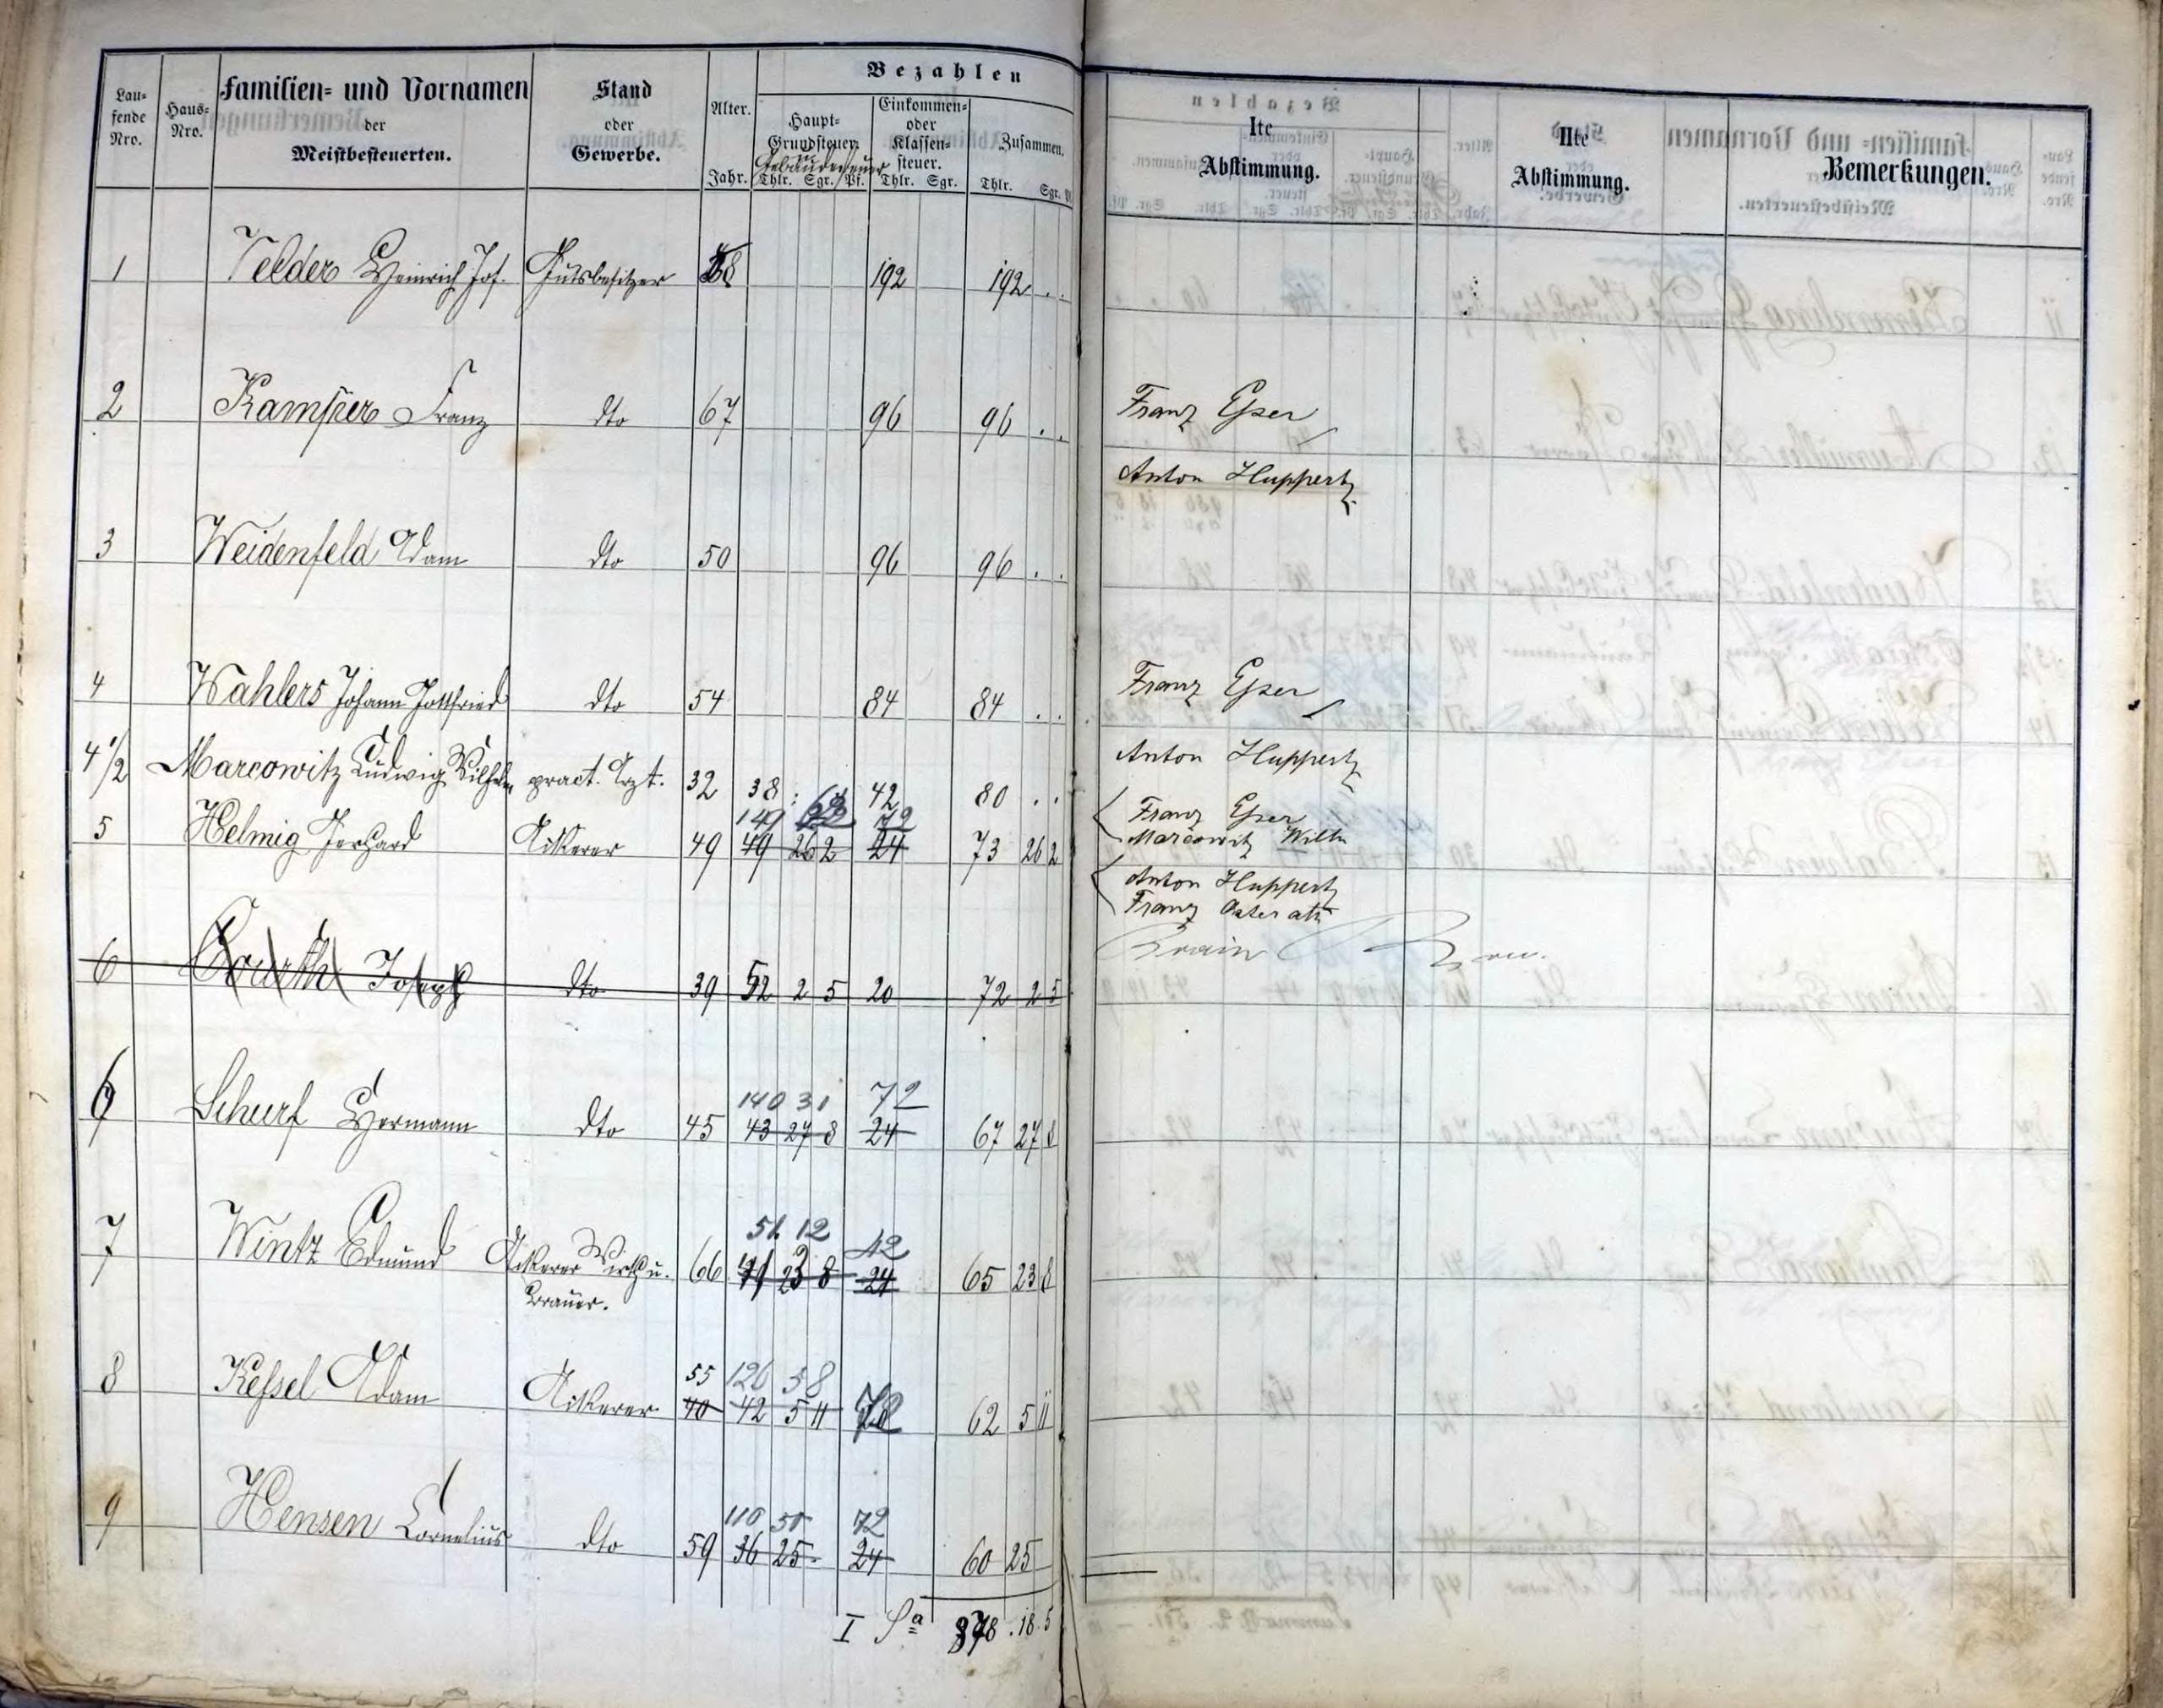 Bezahlen
Lau-
fende
Nro.
Haus-
Nro.
Familien- und Vornamen
der
Meistbesteuerten.
Stand
oder
Gewerbe.
Alter.
Jahr.
Haupt-
Grundsteuer
Gebäudesteuer
Thlr. Sgr. Pf.
Einkommen-
oder
Klassen-
steuer.
Thlr. Sgr.
Zusammen.
Thlr. Sgr.
Ite
Abstimmung.
IIte
Abstimmung.
Bemerkungen.
1 Velder Heinrich Jos. Gutsbesitzer 192 192 . .
2 Kamper Franz dto 67 96 96 . .
Franz Esser
Anton Huppertz
3 Weidenfeld Adam dto 50 96 96 . .
4 Wahlers Johann Gottfried dto 54 84 84 . .
Franz Esser
4 1/2 Marcowitz Ludwig Wilhelm pract. Arzt. 32 38 42 80 . .
Anton Huppertz
149 72
5 Helmig Gerhard Ackerer 49 49 26 2 24 73 26 2
Franz Esser
Marcowitz Wilh
Anton Huppertz
Franz Osterath
6 Joseph dto 39 52 2 5 20 72 2 5
140 31 72
6 Scherf Hermann dto 45 43 27 8 24 67 27 8
51. 12 42
7 Wintz Edmund Ackerer Wirth u. 66 41 23 8 24 65 23 8
Brauer.
55 126 58
8 Kessel Adam Ackerer 40 42 5 11 72 62 5 11
110 50 72
9 Hensen Cornelius dto 59 36 25 - 24 60 25
I Sa 878 . 18 . 5